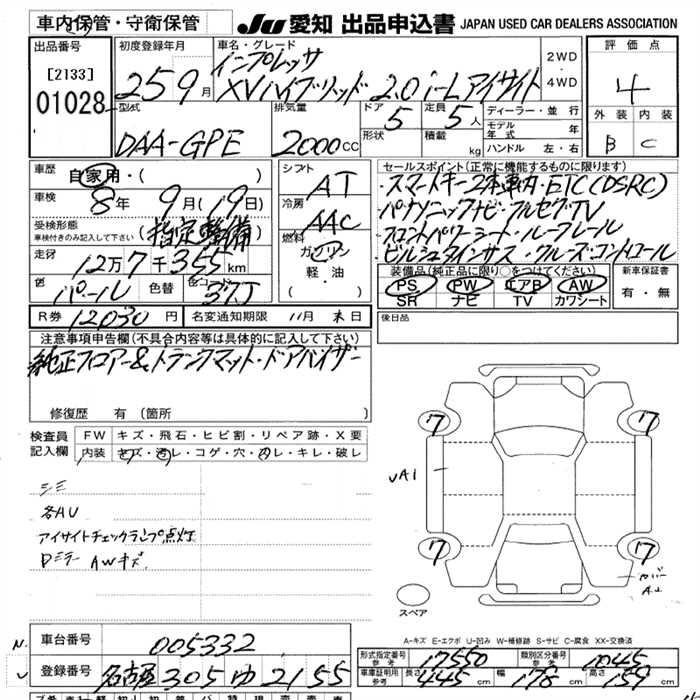 車内保管・守衛保管
JU 愛知 出品申込書 JAPAN USED CAR DEALERS ASSOCIATION
出品番号
[2133]
01028
初度登録年月
25 9月
車名・グレード
インプレッサ
XVハイブリッド 2.0i-Lアイサイト
2WD
4WD
評価点
4
外装 内装
B C
型式
DAA-GPE
排気量
2000cc
ドア 5
形状
定員 5人
積載 kg
ディーラー・並行
モデル年式 年
ハンドル 左・右
車歴
自家用・( )
車検
8年 9月(19日)
受検形態
車検付きのみ記入して下さい
(指定整備)
走行
12万7千355km
色
パール
色替
色コード
37J
シフト
AT
冷房
AAC
燃料
ガソリン
軽・油
・( )
セールスポイント(正常に機能するものに限ります)
・スマートキー2本車内・ETC(DSRC)
・パナソニックナビ・フルセグTV
・フロントパワーシート・ルーフレール
・ビルシュタインサス・クルーズ・コントロール
装備品(純正品に限り○をつけてください)
PS PW エアB AW
SR ナビ TV カワシート
新車保証書
有・無
R券 12030円
名変通知期限 11月末日
後日品
注意事項申告欄(不具合内容等は具体的に記入して下さい)
純正フロアー&トランクマット・ドアバイザー
修復歴 有(箇所
検査員
記入欄
FW キズ・飛石・ヒビ割・リペア跡・X要
内装 キズ・汚レ・コゲ・穴・スレ・キレ・破レ
シミ
各AU
アイサイトチェックランプ点灯
Dミラー AWキズ
7 7
UA1
7 7
スペア
A-キズ E-エクボ U-凹み W-補修跡 S-サビ C-腐食 XX-交換済
車台番号 005332
登録番号 名古屋 305 ゆ 2155
形式指定番号 参考 17550
類別区分番号 参考 1045
車庫証明用 参考 長さ 445cm 幅 178cm 高さ 159cm